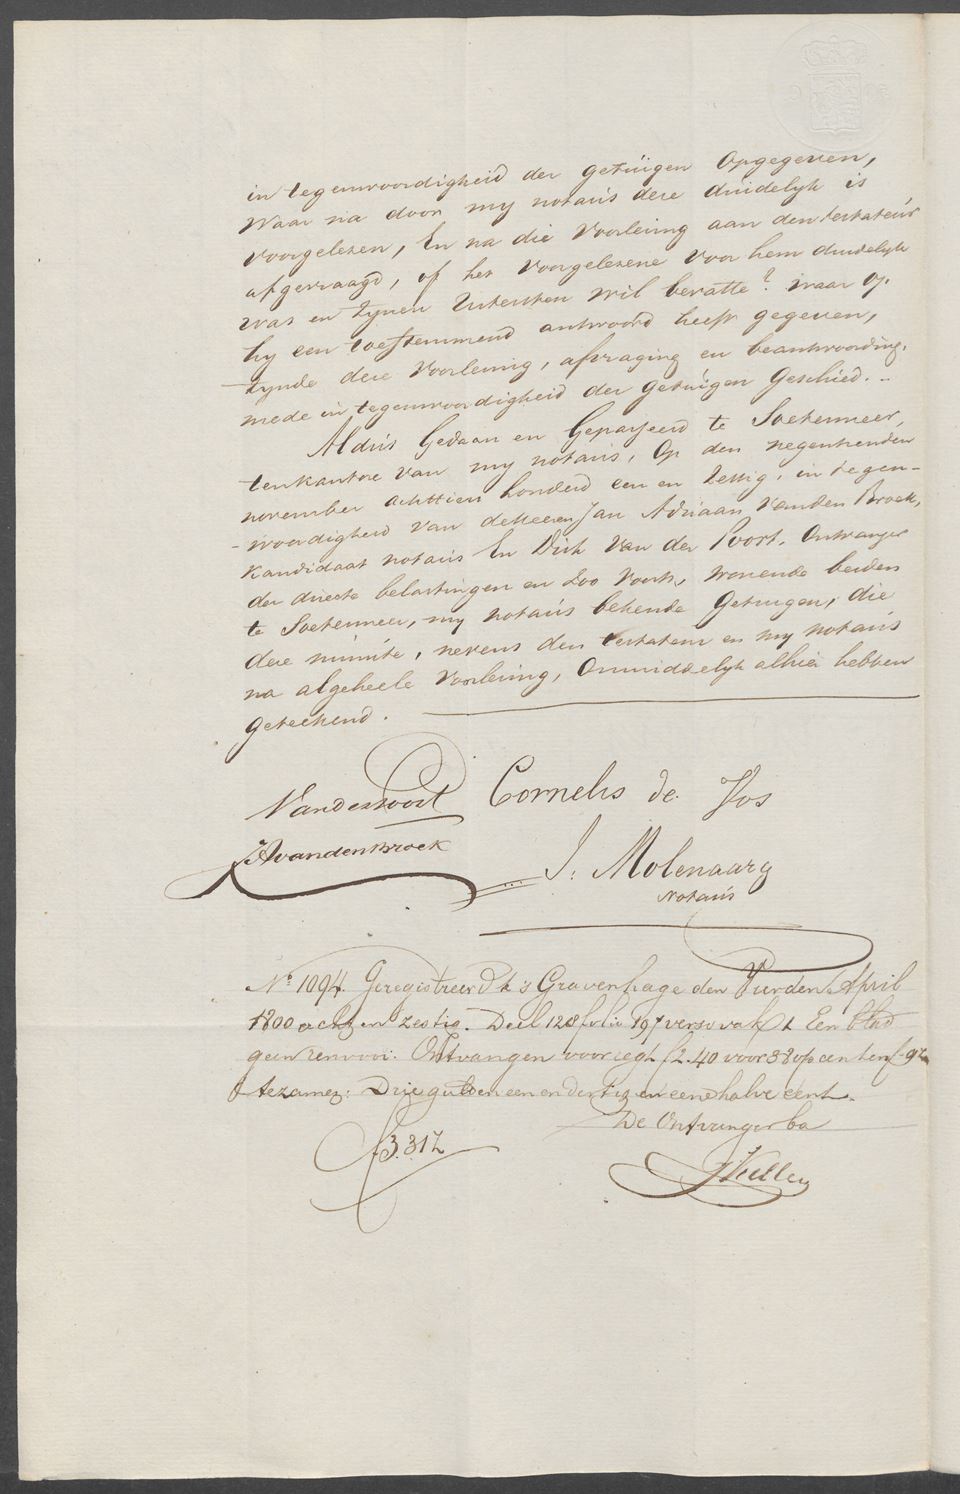 in tegenwoordigheid der getuigen Opgegeven,
Waar na door my notaris deze duidelyk is
voorgelezen, En na die Voorlezing aan den testateur
afgevraagd, of het Voorgelezene voor hem duidelyk
was en zynen Uitersten wil bevatte? waar op
hy een toestemmend antwoord heeft gegeven,
zynde deze Voorlezing, afvraging en beantwoording,
mede in tegenwoordigheid der getuigen Geschied. –
Aldus Gedaan en Gepasseerd te Soetermeer,
ten kantore van my notaris, Op den negentienden
november achttien honderd een en zestig, in tegen-
-woordigheid van de Heeren Jan Adriaan Van den Broek,
kandidaat notaris En Dirk Van der Poort, Ontvanger
der directe belastingen en zoo voorts, wonende beiden
te Soetermeer, my notaris bekende Getuigen, die
deze minute, nevens den testateur en my notaris
na algeheele Voorlezing, Onmiddelyk alhier hebben
Geteekend.
Vanderpoort Cornelis de Vos
JAvandenBroek
J: Molenaar
Notaris
No. 1094. Geregistreerd te 's Gravenhage den Vierden April
1800 acht en zestig. Deel 128 folio 197 verso vak 1 Een blad
geen renvooi. Ontvangen voor regt f2.40 voor 38 opcenten f-.91
tezamen: Drie gulden een en dertig en eene halve cent.
De Ontvanger ba
f3.31½